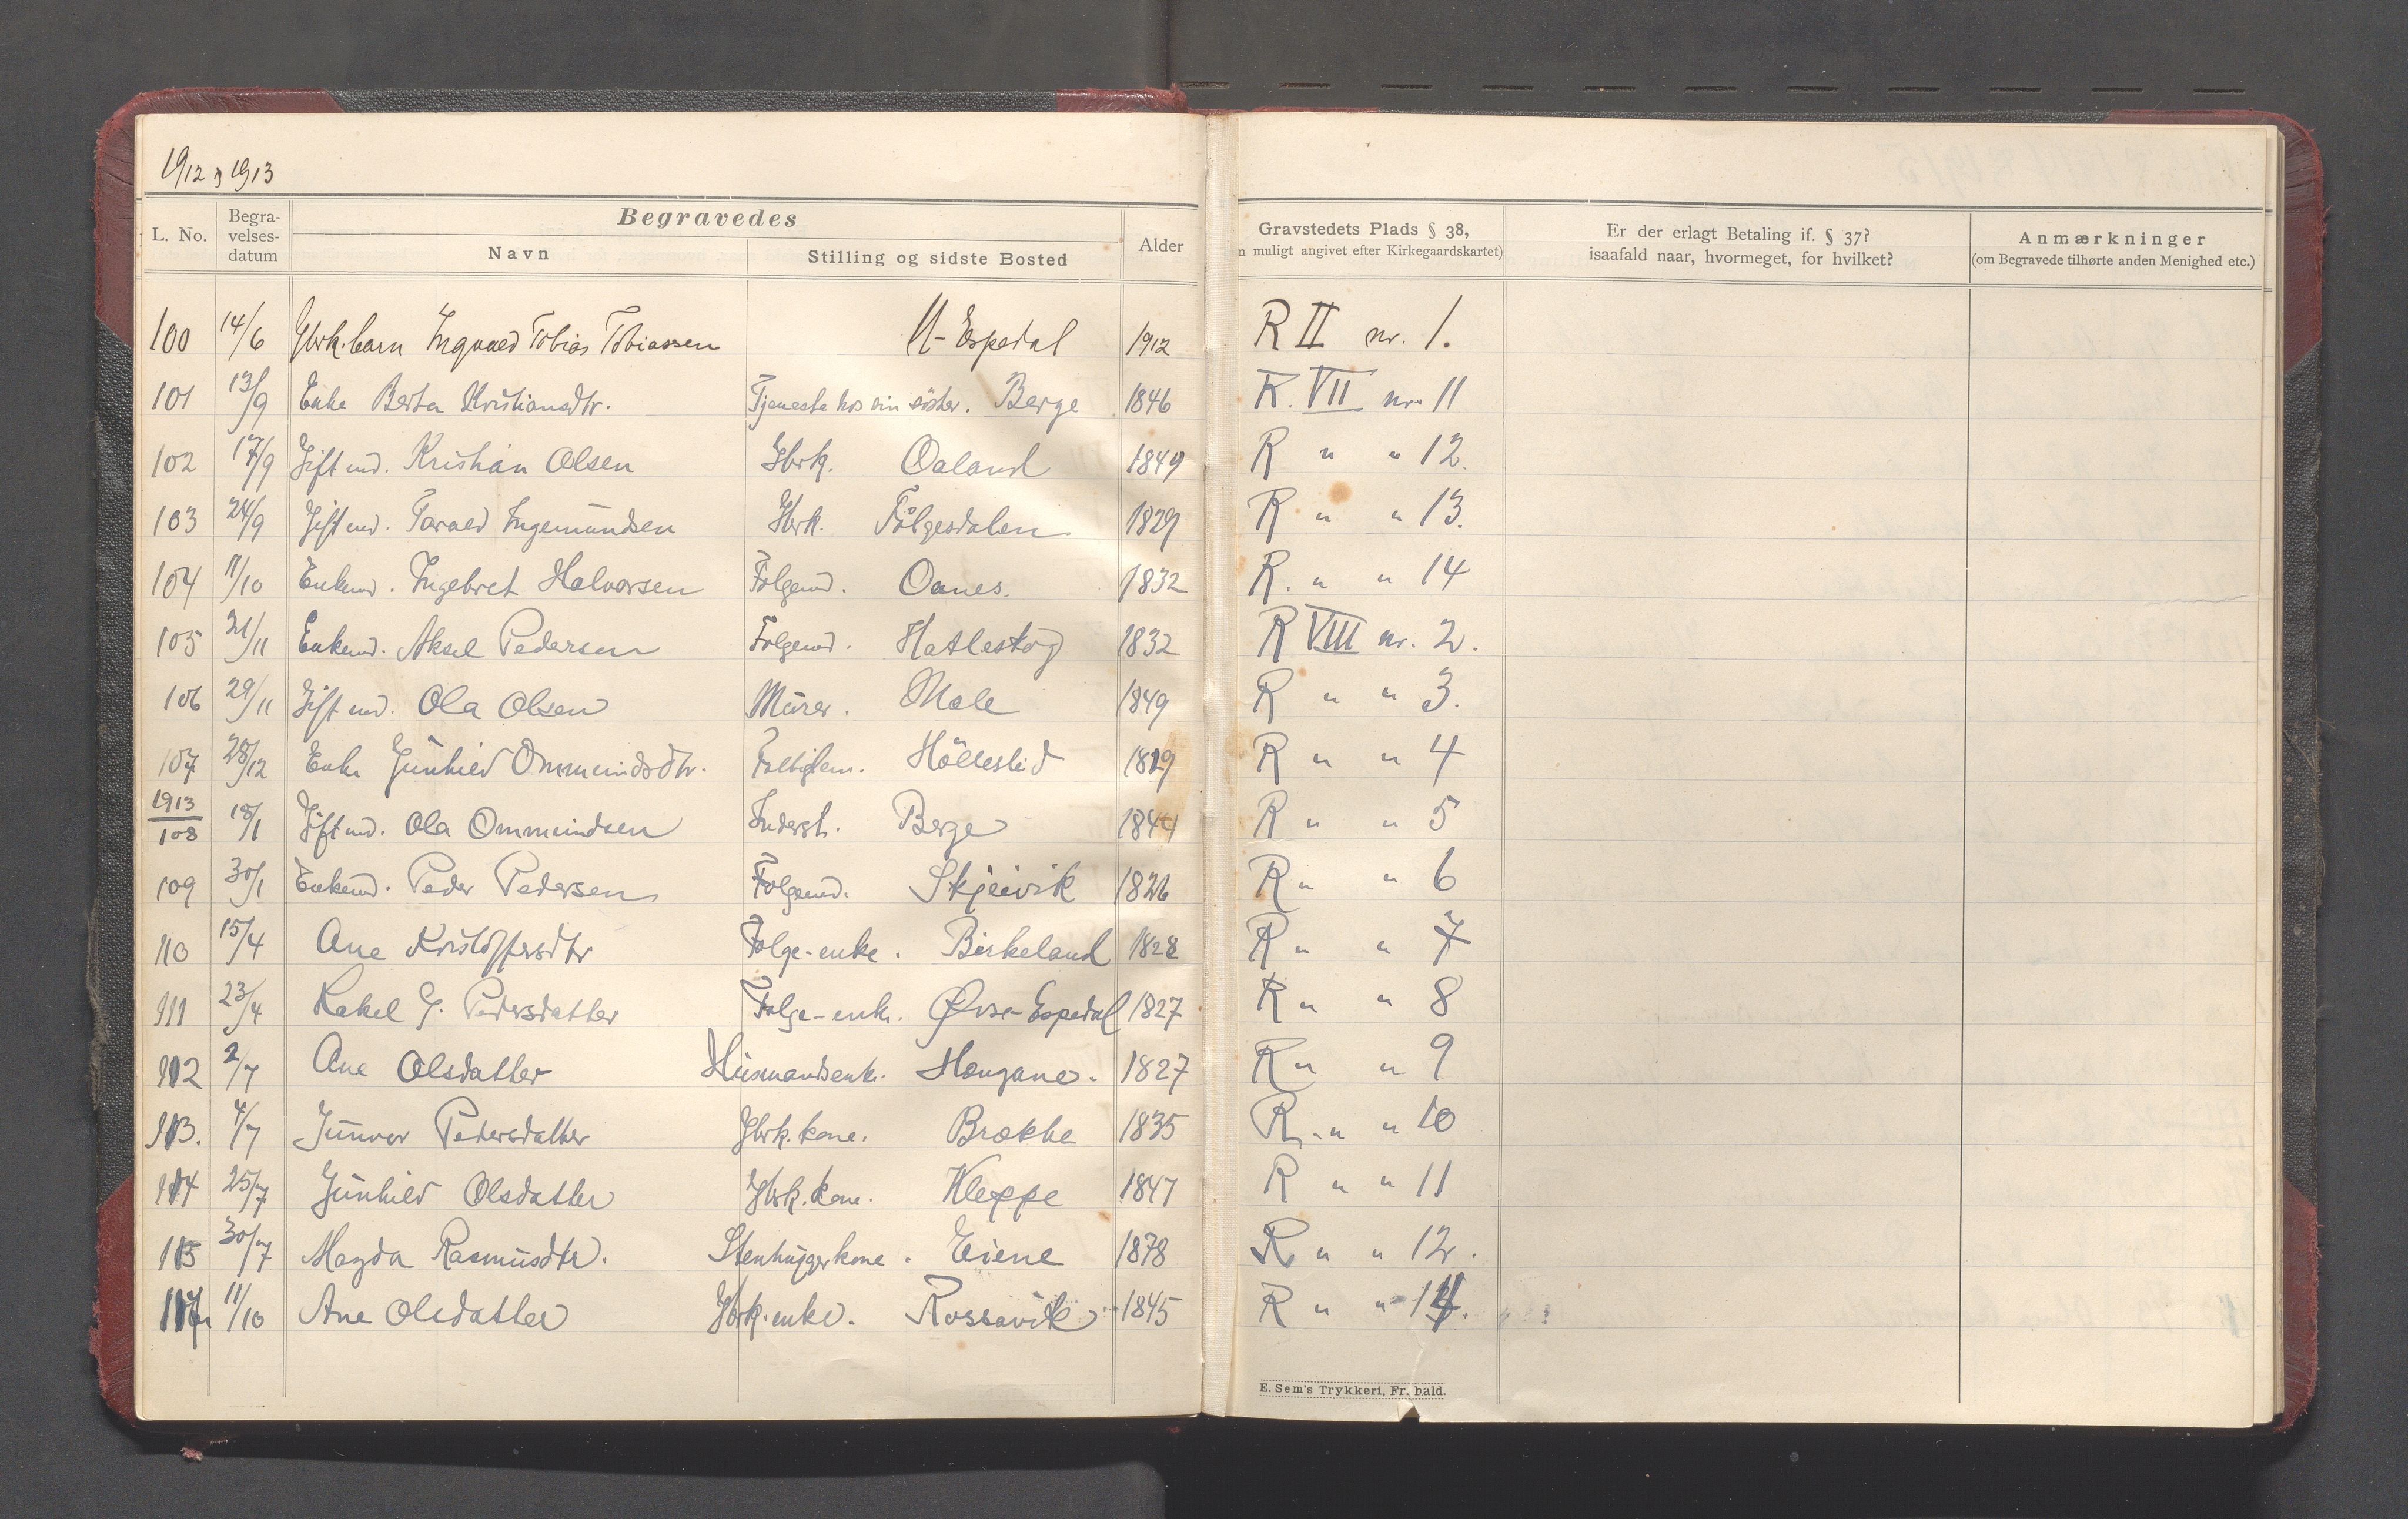 1912 og 1913
L. No.
Begra-
velses-
datum
Begravedes
Navn
Stilling og sidste Bosted
Alder
Gravstedets Plads § 38,
muligt angivet efter Kirkegaardskartet)
Er der erlagt Betaling if. § 37?
isaafald naar, hvormeget, for hvilket?
Anmærkninger
(om Begravede tilhørte anden Menighed etc.)
100 14/6 Gbrk.barn Ingvald Tobias Tobiassen Espedal 1912 R II nr. 1.
101 13/9 Enke Berta Kristiansdtr. Tjeneste hos sin söster. Berge 1846 R. VII nr. 11
102 17/9 Gift md. Kristian Olsen Gbrk. Oaland 1849 R " " 12.
103 24/9 Gift md. Tarald Ingemundsen Gbrk. Fölgesdalen 1829 R " " 13.
104 11/10 Enkemd. Ingebret Halvorsen Folgemd. Oanes. 1832 R. " " 14
105 21/11 Enkemd. Aksel Pedersen Folgemd. Hatleskog 1832 R VIII nr. 2.
106 29/11 Gift md. Ola Olsen Murer. Mæle 1849 R " " 3.
107 28/12 Enke Gunhild Ommundsdtr. Fattiglem. Hölleslid 1819 R " " 4
1913
108 18/1 Gift md. Ola Ommundsen Inderst. Berge 1844 R " " 5
109 30/1 Enkemd. Peder Pedersen Folgemd. Skjeivik 1826 R " " 6
110 15/4 Ane Kristoffersdtr Folge-enke. Birkeland 1828 R " " 7
111 23/4 Rakel G. Pedersdatter Folge-enk. Øvre-Espedal 1827 R " " 8
112 2/7 Ane Olsdatter Husmandsenk. Haugane. 1827 R " " 9
113. 4/7 Gunvor Pedersdatter Gbrk.kone. Brække 1835 R. " " 10
114 25/7 Gunhild Olsdatter Gbrk.kone. Kleppe 1847 R " " 11
115 30/7 Magda Rasmusdtr. Stenhuggerkone. Eiene 1878 R " " 12.
11/10 Ane Olsdatter Gbrk.enke. Rossavik 1845 R " " 14.
E. Sem's Trykkeri, Fr. hald.